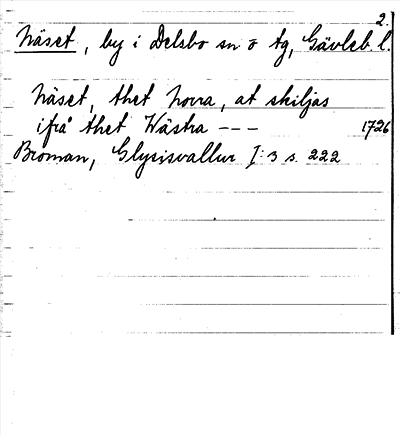 2.
Näset, by i Delsbo sn o tg, Gävleb. l.
Näset, thet norra, at skiljas
ifrå thet Wästra --- 1726
Broman, Glysisvallur I:3 s. 222